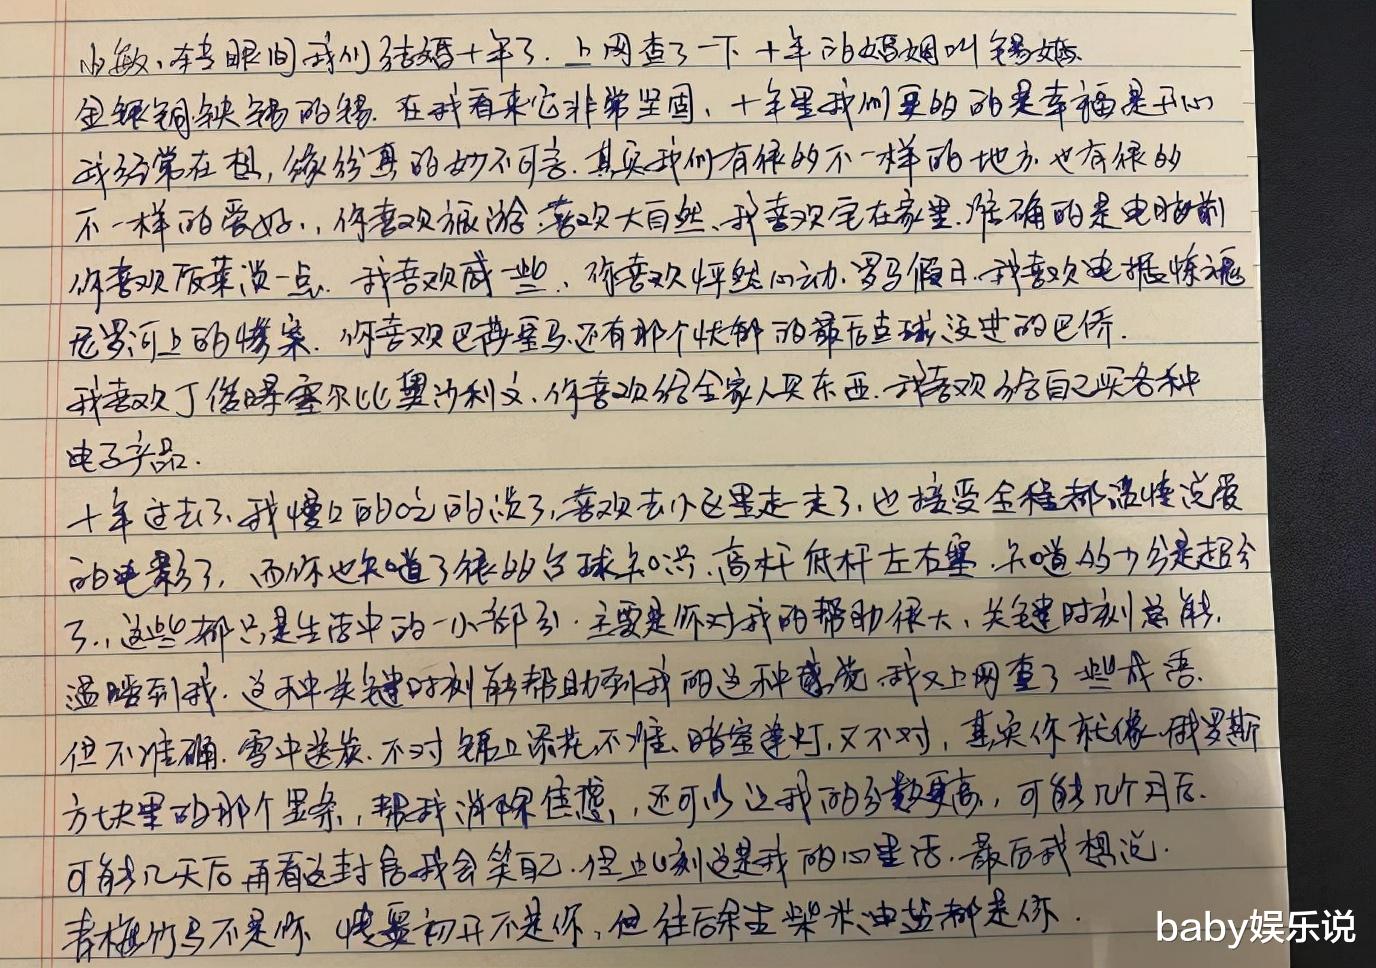 小敏、转眼间我们结婚十年了.上网查了一下十年的婚姻叫锡婚.
金银铜铁锡的锡.在我看来它非常坚固、十年里我们更多的是幸福是开心
我经常在想,缘分真的妙不可言.其实我们有很多不一样的地方.也有很多
不一样的爱好.,你喜欢旅游.喜欢大自然、我喜欢宅在家里.准确的是电脑前
你喜欢饭菜淡一点.我喜欢咸一些、你喜欢怦然心动.罗马假日.我喜欢电锯惊魂
尼罗河上的惨案.你喜欢巴蒂 还有那个忧郁的最后点球没进的巴乔.
我喜欢丁俊晖塞尔比奥沙利文、你喜欢给全家人买东西.我喜欢给自己买各种
电子产品.
十年过去了、我慢慢的吃的淡了,喜欢去小区里走一走了,也接受全程都谈情说爱
的电影了、而你也知道了很多台球知识、高杆低杆左右塞.知道多少分是超分
了.,这些都只是生活中的一小部分.主要是你对我的帮助很大、关键时刻总能.
温暖到我.这种关键时刻能帮助到我的这种感觉.我又上网查了一些成语.
但不准确.雪中送炭.不对 锦上添花,不准、暗室逢灯,又不对,其实你就像俄罗斯
方块里的那个竖条,帮我消除焦虑,还可以让我的分数更高,可能几个月后.
可能几天后再看这封信我会笑自己.但此刻这是我的心里话.最后我想说.
青梅竹马不是你 情窦初开不是你,但往后余生柴米油盐都是你.
baby娱乐说